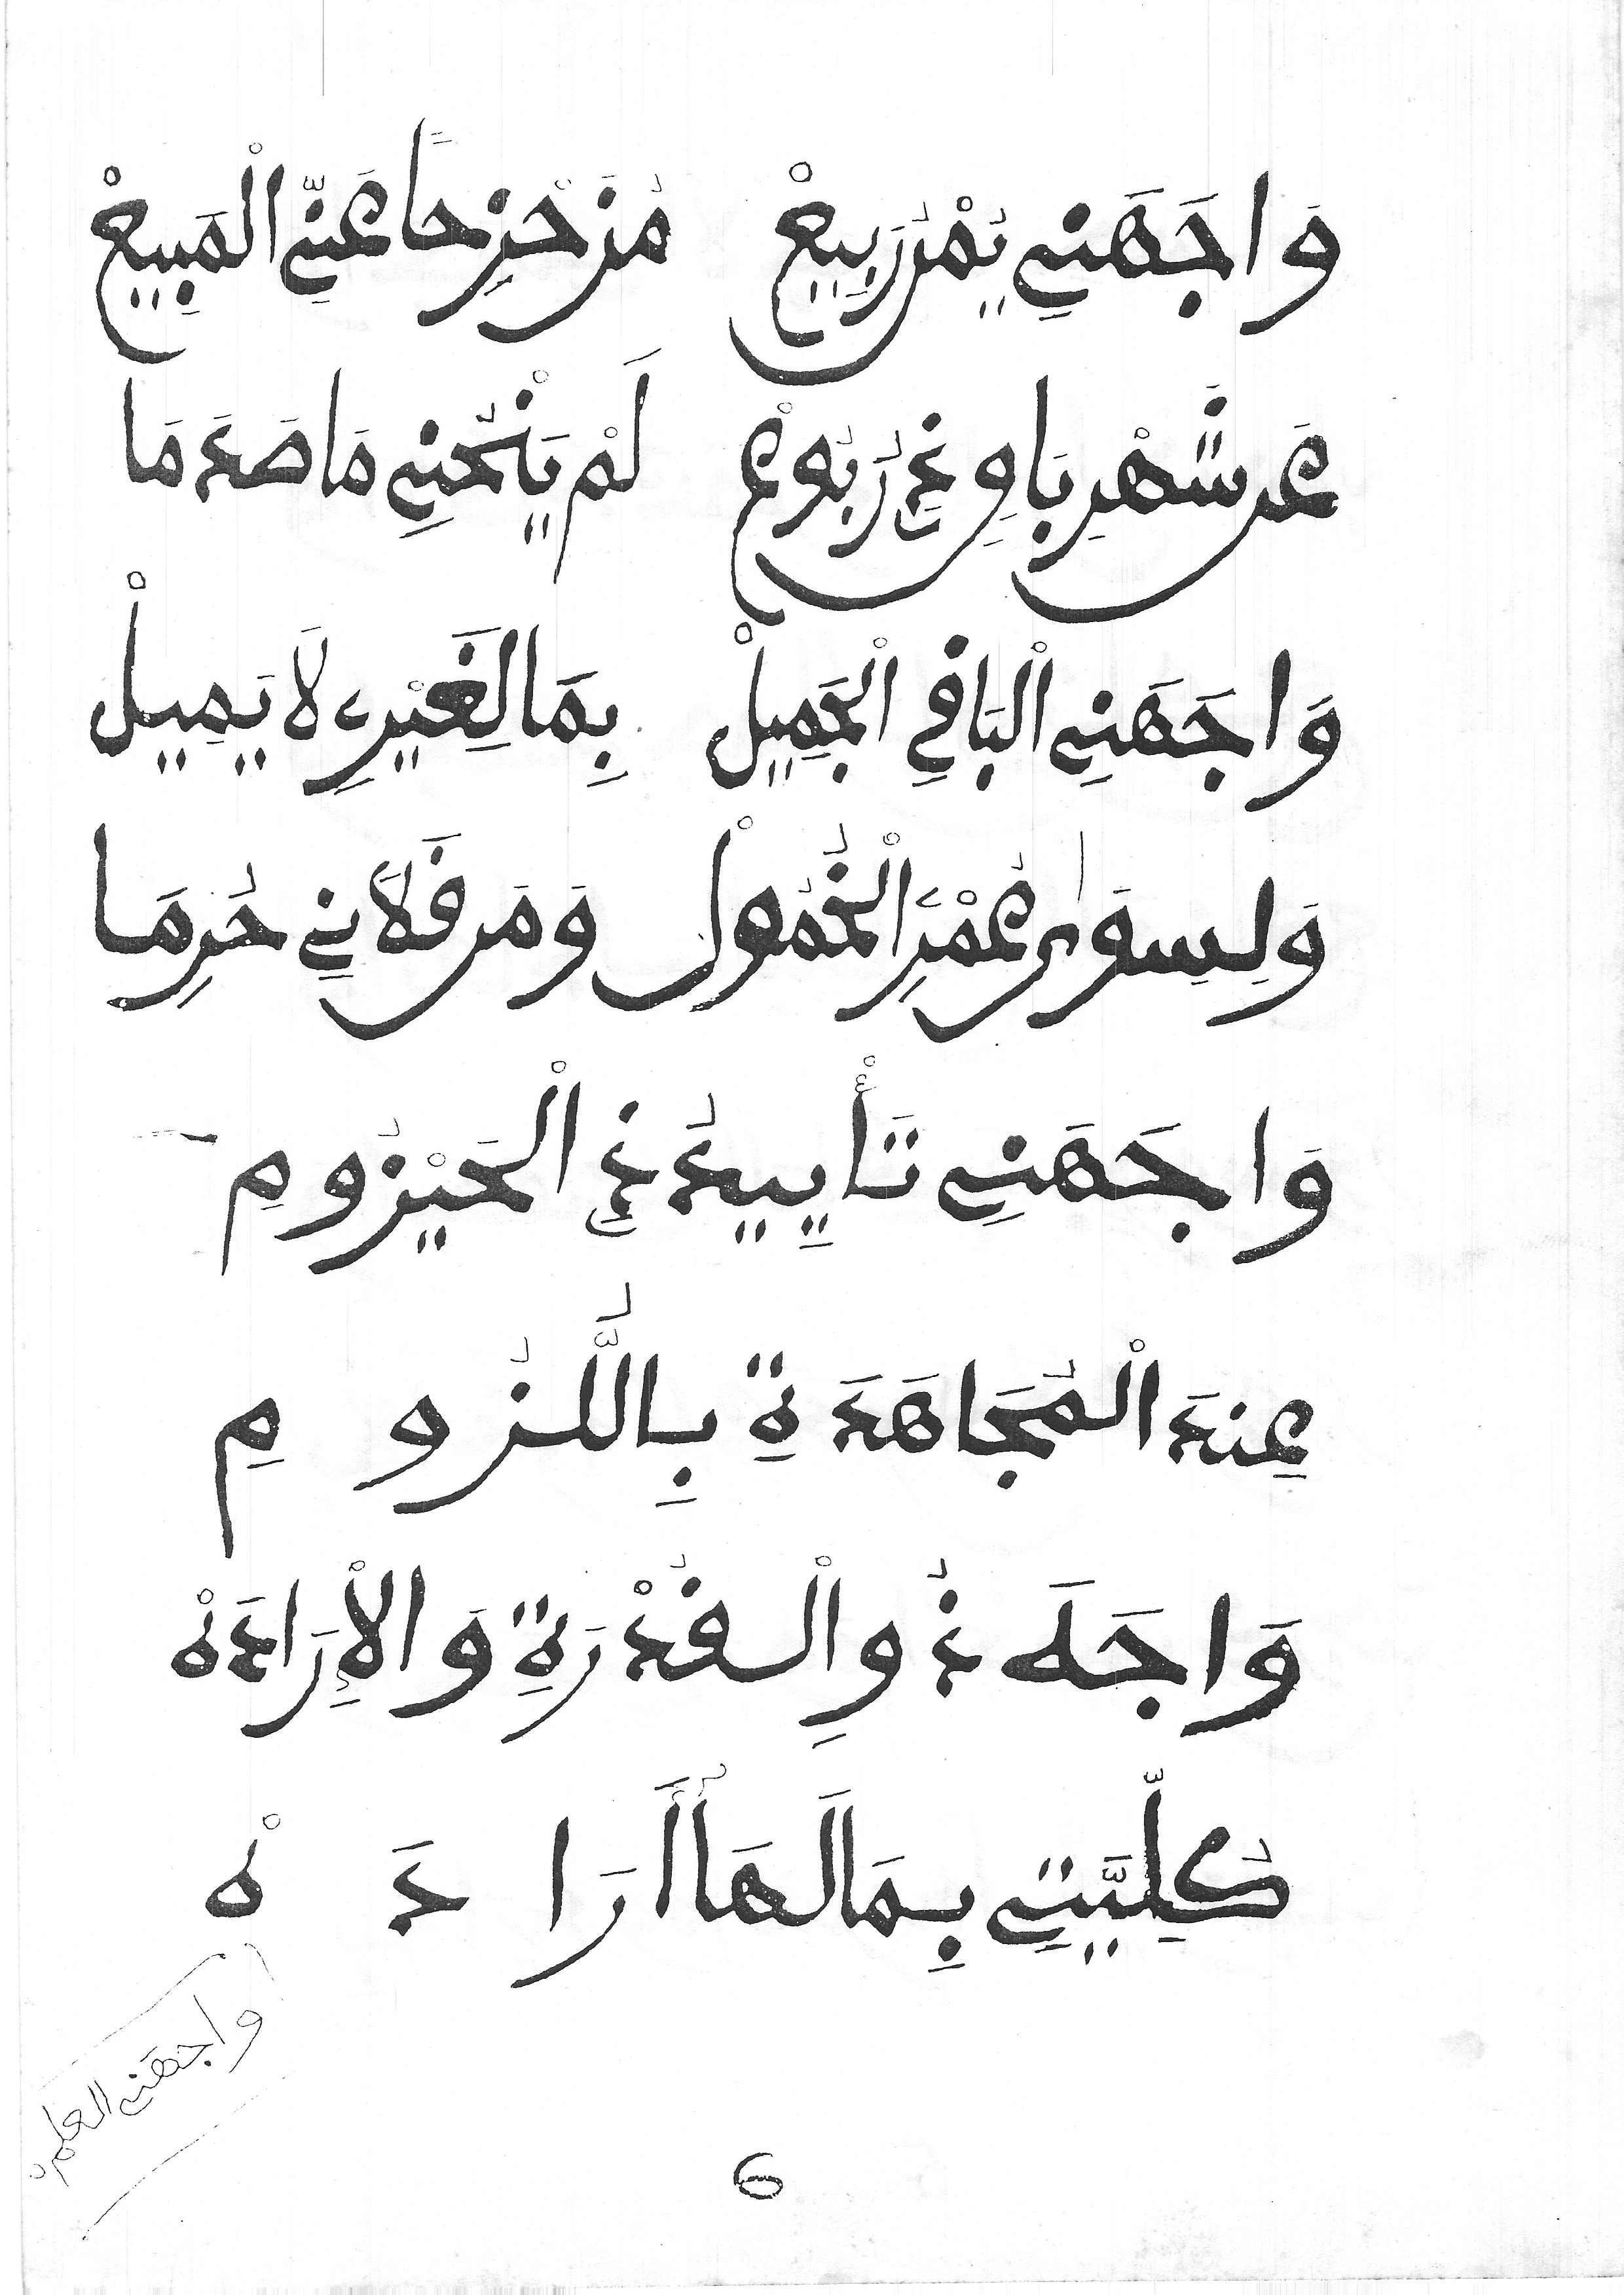 وَاجَهَنِي يُمْنُ رَبِيعْ مُزَحْزِحًا عَنِّي الْمَبِيعْ
عَن شَهْرِ بَاوِ ذِي رُبُوعْ لَمْ يَنْحُنِي مَا صَدَمَا
وَاجَهَنِي الْبَاقِي الْجَمِيلْ بِمَا لِغَيْرِي لَا يَمِيلْ
وَلِسِوَىٰ عُمْرِيَ الْخُمُولْ وَمَن قَلَانِي حُرِمَا
وَاجَهَنِي تَأْيِيدُ ذِي الْحَيْزُومِ
عِندَ الْمُجَاهَدَةِ بِاللُّزُومِ
وَاجَهَ ذُو الْقُدْرَةِ وَالْإِرَادَهْ
كُلِّيَّتِي بِمَا لَهَا أَرَادَهْ
واجهني العلم
6